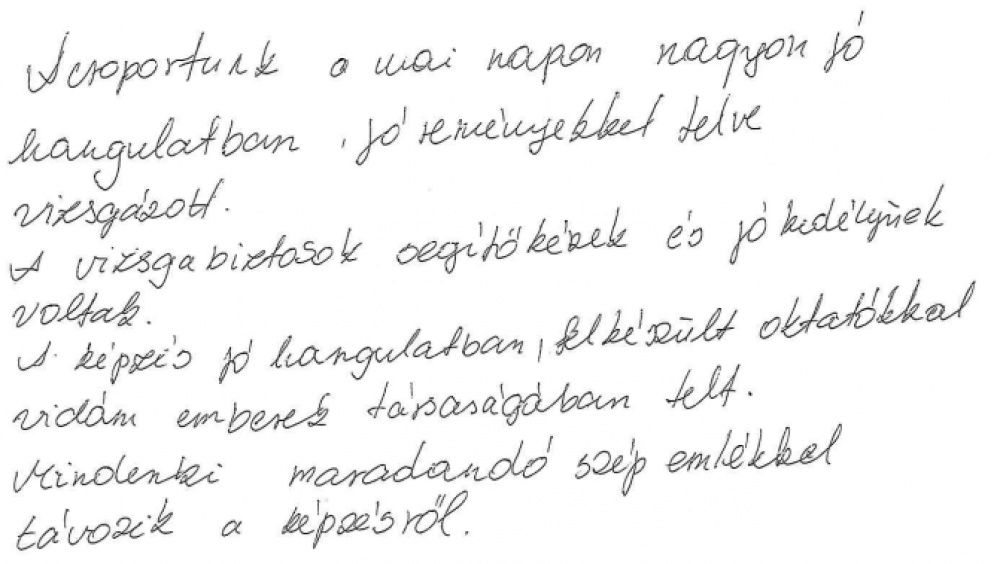 A csoportunk a mai napon nagyon jó
hangulatban, jó reményekkel telve
vizsgázott.
A vizsgabiztosok segítőkészek és jó kedélyűek
voltak.
A képzés jó hangulatban, felkészült oktatókkal
vidám emberek társaságában telt.
Mindenki maradandó szép emlékkel
távozik a képzésről.